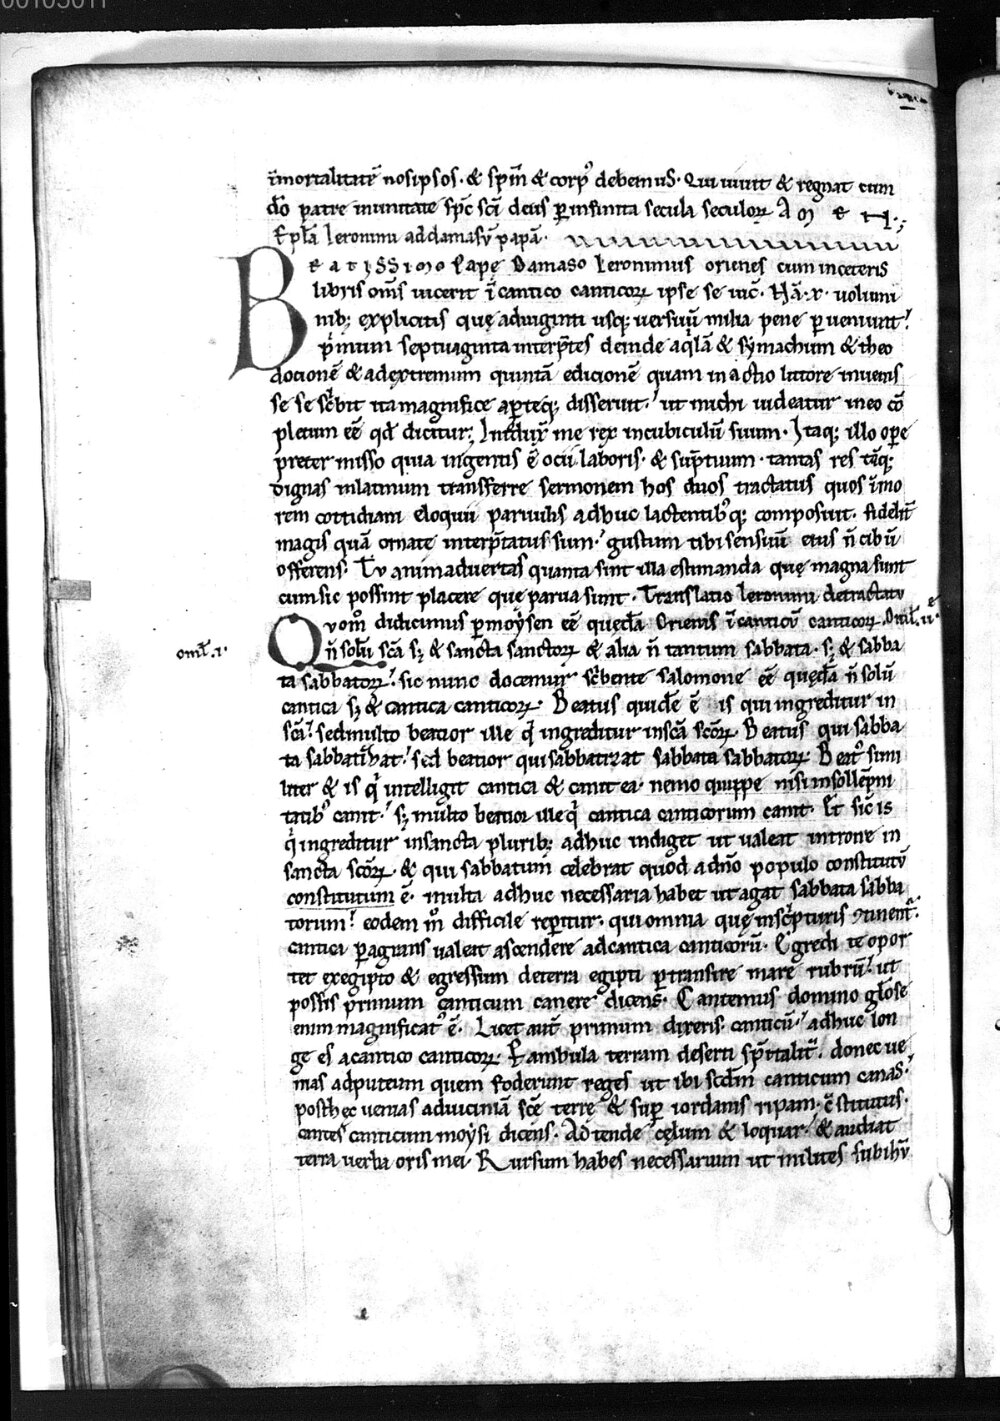 00105011
īmortalitatē nosipsos· & spm̄ & corp⁹ debemus· Qui uiuit & regnat cum
dō patre inunitate spc̄ scī deus ꝑ infinita secula seculoꝝ A M E N·;
Epłā Ieronimi addamasū papā·
BEATISSIMO Papę Damaso Ieronimus origenes cum inceteris
libris om̄s uicerit ī cantico canticoꝝ ipse se uic̄· Nā·x· uolumi
nib; explicitis quę aduiginti usq; uersuū milia pene ꝑueniunt·
p̄mum septuaginta interp̄tes deinde aq̄lā & symachum & theo
docionē & adextremum quintā edicionē quam in actio littore inuenis
se se sc̄bit ita magnifice aꝑteq; disseruit· ut michi uideatur ineo cō
pletum eē qd̄ dicitur; Introdux̄ me rex incubiculū suum· Itaq; illo opere
preter misso quia ingentis ē ocii laboris· & sūptuum· tantas res tāq;
dignas inlatinum transferre sermonem hos duos tractatus quos īmo
rem cottidiani eloquii paruulis adhuc lactentib⁹q; composuit· fidelit̄
magis quā ornate interp̄tatus sum· gustum tibi sensuū eius n̄ cibū
offerens· Tu animaduertas quanta sint illa estimanda quę magna sunt
cum sic possint placere que parua sunt· Translatio Ieronimi detractatu
Quom̄ didicimus ꝑ moysen eē quędā Origenis ī canticū canticoꝝ· Omel̄·iiᵉ·
omel̄·i· n̄ solū scā sꝫ & sancta sanctoꝝ & alia n̄ tantum sabbata· sꝫ & sabba
ta sabbatoꝝ· sic nunc docemur sc̄bente salomone eē quędā n̄ solū
cantica sꝫ & cantica canticoꝝ· Beatus quidē ē is qui ingreditur in
scā· sed multo beatior ille q̄ ingreditur inscā scōꝝ· Beatus qui sabba
ta sabbatizat· sed beatior qui sabbatizat sabbata sabbatoꝝ· Beat⁹ simi
liter & is q̄ intelligit cantica & canit ea· nemo quippe nisi insollēpni
tatib⁹ canit· sꝫ multo beatior ille q̄ cantica canticorum canit· Et sic̄ is
q̄ ingreditur insancta plurib; adhuc indiget ut ualeat introire in
sancta scōꝝ· & qui sabbatum celebrat quod adn̄o populo constitutū
constitutum ē· multa adhuc necessaria habet ut agat sabbata sabba
torum· eodem m̄ difficile reꝑitur· qui omnia quę insc̄pturis ꝯtinent̄·
cantica ꝑagrans ualeat ascendere adcantica canticorū· Egredi te opor
tet exegipto & egressum deterra egipti ꝑtransire mare rubrū· ut
possis primum canticum canere dicens· Cantemus domino gl̄ose
enim magnificat⁹ ē· Licet aut̄ primum dixeris canticū· adhuc lon
ge es acantico canticoꝝ· Eambula terram deserti sp̄italit̄· donec ue
nias adputeum quem foderunt reges ut ibi scd̄m canticum canas·
posthęc uenias aduiciniā scē terrę & suꝑ iordanis ripam· c̄stitutus·
cantes canticum moysi dicens· Adtende cęlum & loquar· & audiat
terra uerba oris mei· Rursum habes necessarium ut milites subihū